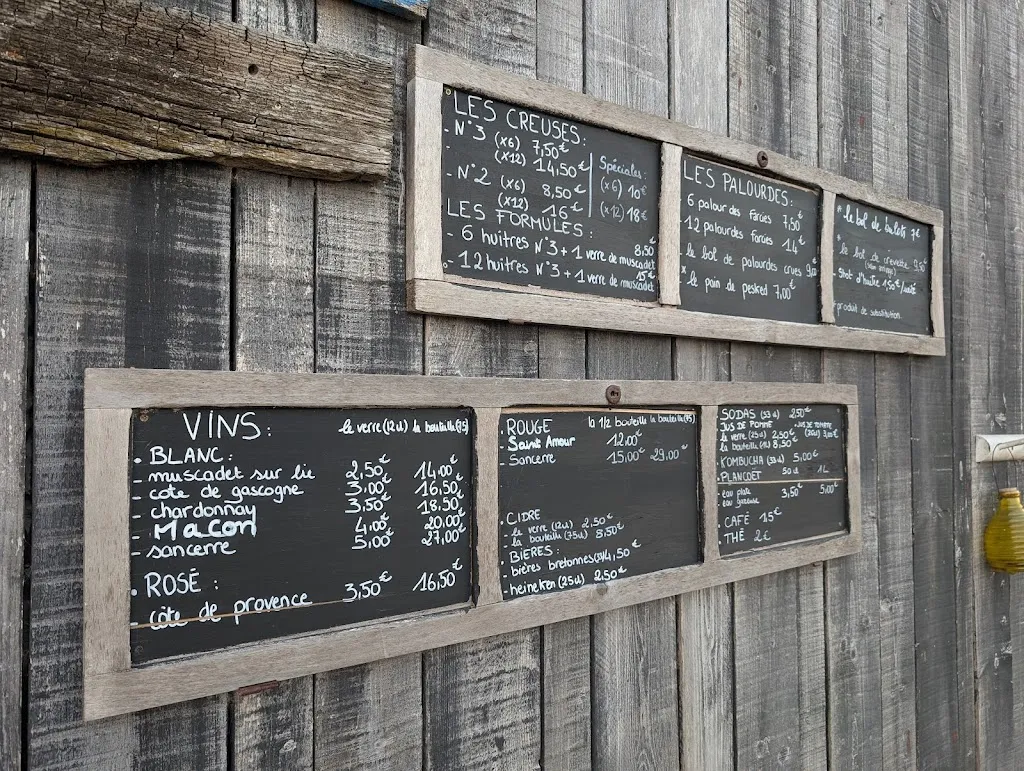 LES CREUSES:
- N°3 (x6) 7,50€
- (x12) 14,50€
- N°2 (x6) 8,50€
(x12) 16€
Spéciales:
(x6) 10€
(x12) 18€
LES FORMULES:
- 6 huîtres N°3 + 1 verre de muscadet 8,50
- 12 huîtres N°3 + 1 verre de muscadet 15€
LES PALOURDES:
6 palourdes farcies 7,50€
12 palourdes farcies 14€
le bol de palourdes crues 9,00
* le pain de pesked 7,00€
* le bol de bulots 7€
* le bol de crevette 9,50€
Shot d'huître 1,50€/unité
* produit de substitution.
VINS:
le verre (12cl) la bouteille (75)
• BLANC:
- muscadet sur lie 2,50€ 14,00€
- cote de gascogne 3,00€ 16,50€
- chardonnay 3,50€ 18,50€
- Macon 4,00€ 20,00€
- sancerre 5,00€ 27,00€
• ROSÉ:
- côte de provence 3,50€ 16,50€
• ROUGE la 1/2 bouteille la bouteille (75)
- Saint Amour 12,00€
- Sancerre 15,00€ 29,00€
• CIDRE
- le verre (12cl) 2,50€
- la bouteille (75cl) 8,50€
• BIÈRES:
- bières bretonnes (33) 4,50€
- heineken (25cl) 2,50€
• SODAS (33cl) 2,50€
JUS DE POMME - JUS DE TOMATE
le verre (25cl) 2,50€ (20cl) 3,00€
la bouteille (1L) 8,50€
• KOMBUCHA (33cl) 5,00€
• PLANCOËT 50cl 1L
- eau plate
- eau gazeuse 3,50€ 5,00€
• CAFÉ 1,5€
• THÉ 2€